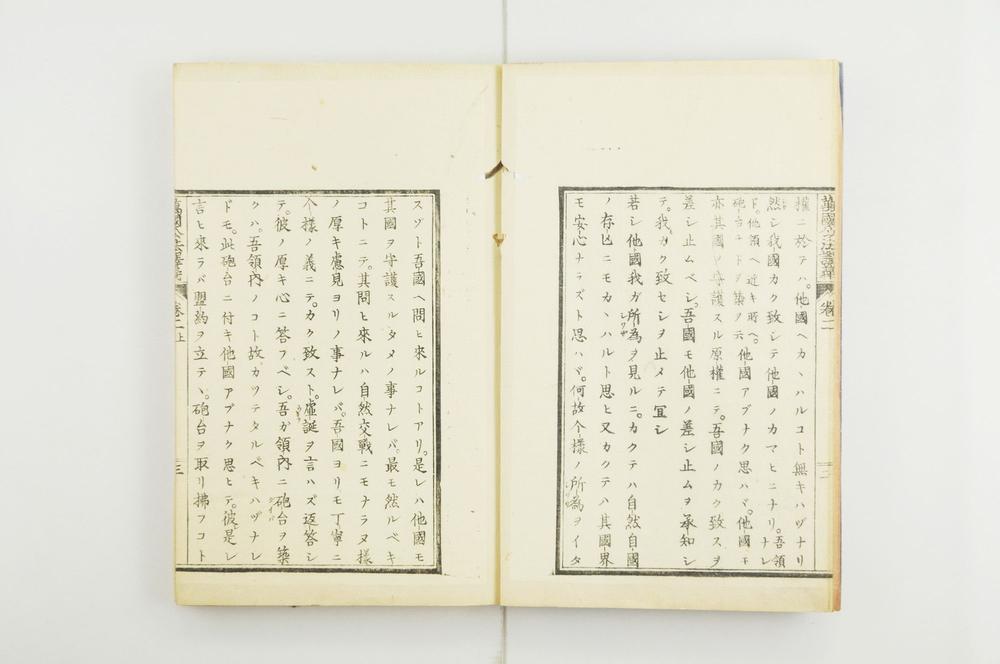 萬國公法譯義
卷二
二
權ニ於テハ。他國ヘカヽハルコト無キハヅナリ
然シ我國カク致シテ他國ノカマヒニナリ。吾領
ド。他領ヘ近キ時ヘ。他國アブナク思ハバ。他國モ
砲台ナドヲ築ヲ云
亦其國ヲ守護スル原權ニテ。吾國ノカク致スヲ
差シ止ムベシ。吾國モ他國ノ差シ止ムヲ承知シ
テ。我カク致セシヲ止メテ宜シ
若シ他國我ガ所為ヲ見ルニ。カクテハ自然自國
シワザ
ノ存亡ニモカヽハルト思ヒ又カクテハ其國界
モ安心ナラズト思ハバ。何故个樣ノ所為ヲイタ
スゾト吾國ヘ問ヒ來ルコトアリ。是レハ他國モ
其國ヲ守護スルタメノ事ナレバ。最モ然ルベキ
コトニテ。其問ヒ來ルハ自然交戰ニモナラヌ樣
ノ厚キ慮見ヨリノ事ナレバ。吾國ヨリモ丁寧ニ
个樣ノ義ニテ。カク致スト。虛誕ヲ言ハズ返答シ
テ。彼ノ厚キ心ニ答フベシ。吾ガ領內ニ砲台ヲ築
クハ。吾領內ノコト故カツテタルベキハヅナレ
ドモ。此砲台ニ付キ他國アブナク思ヒテ。彼是レ
言ヒ來ラバ盟約ヲ立テヽ。砲台ヲ取リ拂フコト
卷二上
三